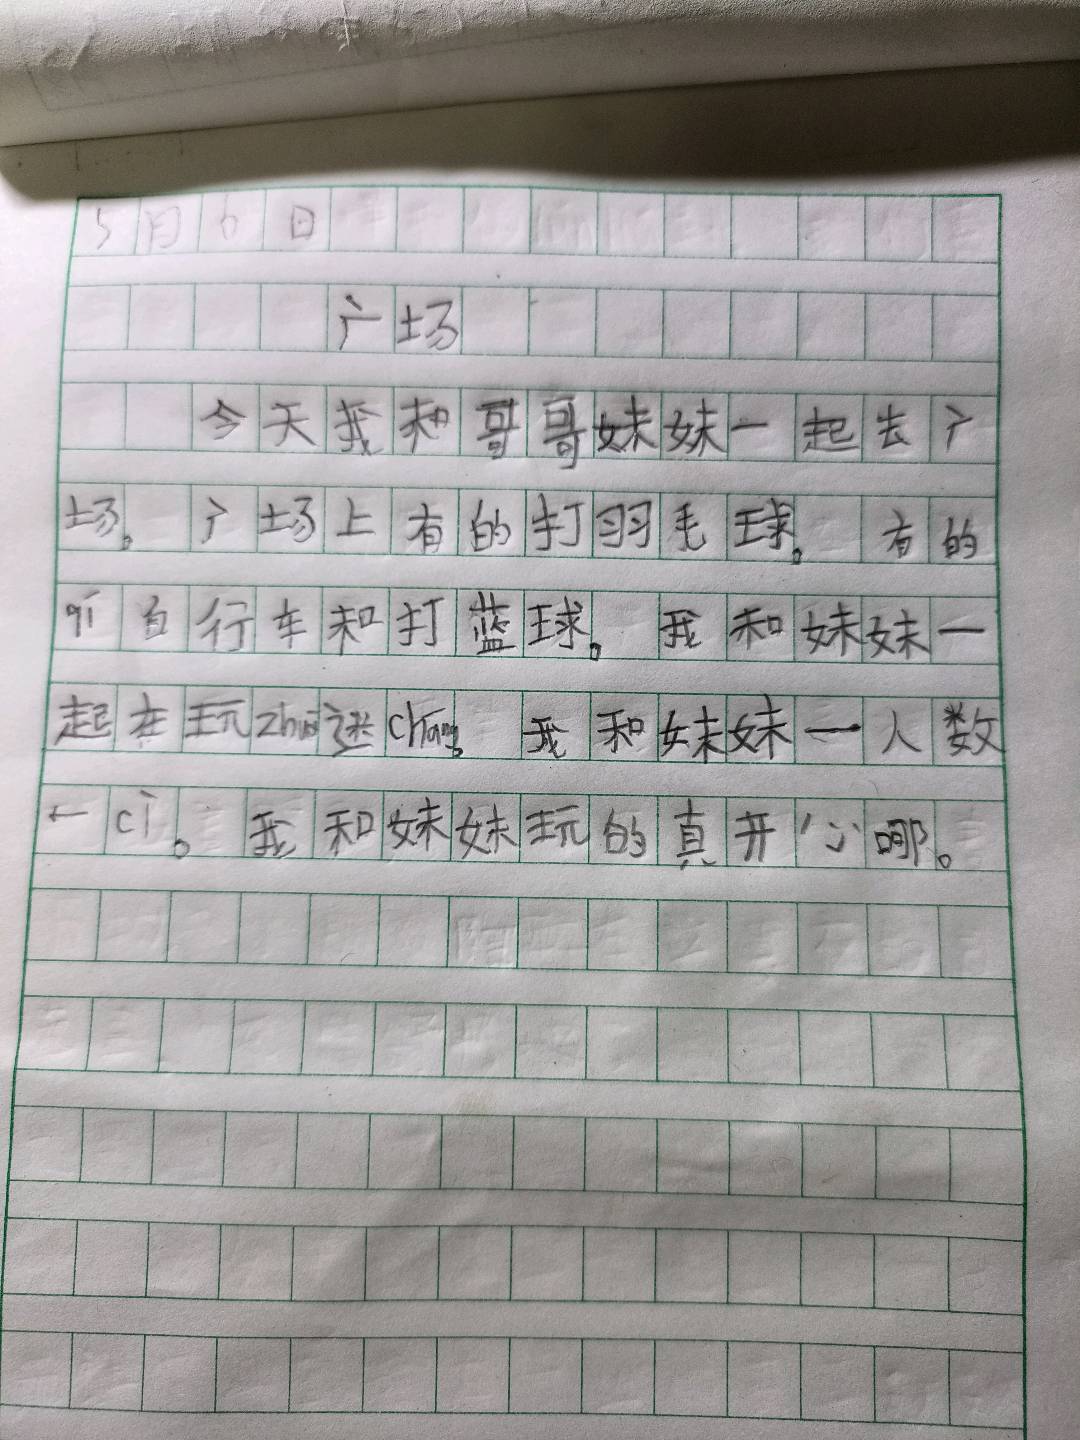 5月6日
广场
今天我和哥哥妹妹一起去广
场。广场上有的打羽毛球。有的
qí自行车和打蓝球。我和妹妹一
起在玩zhuō迷cáng。我和妹妹一人数
一cì。我和妹妹玩的真开心哪。